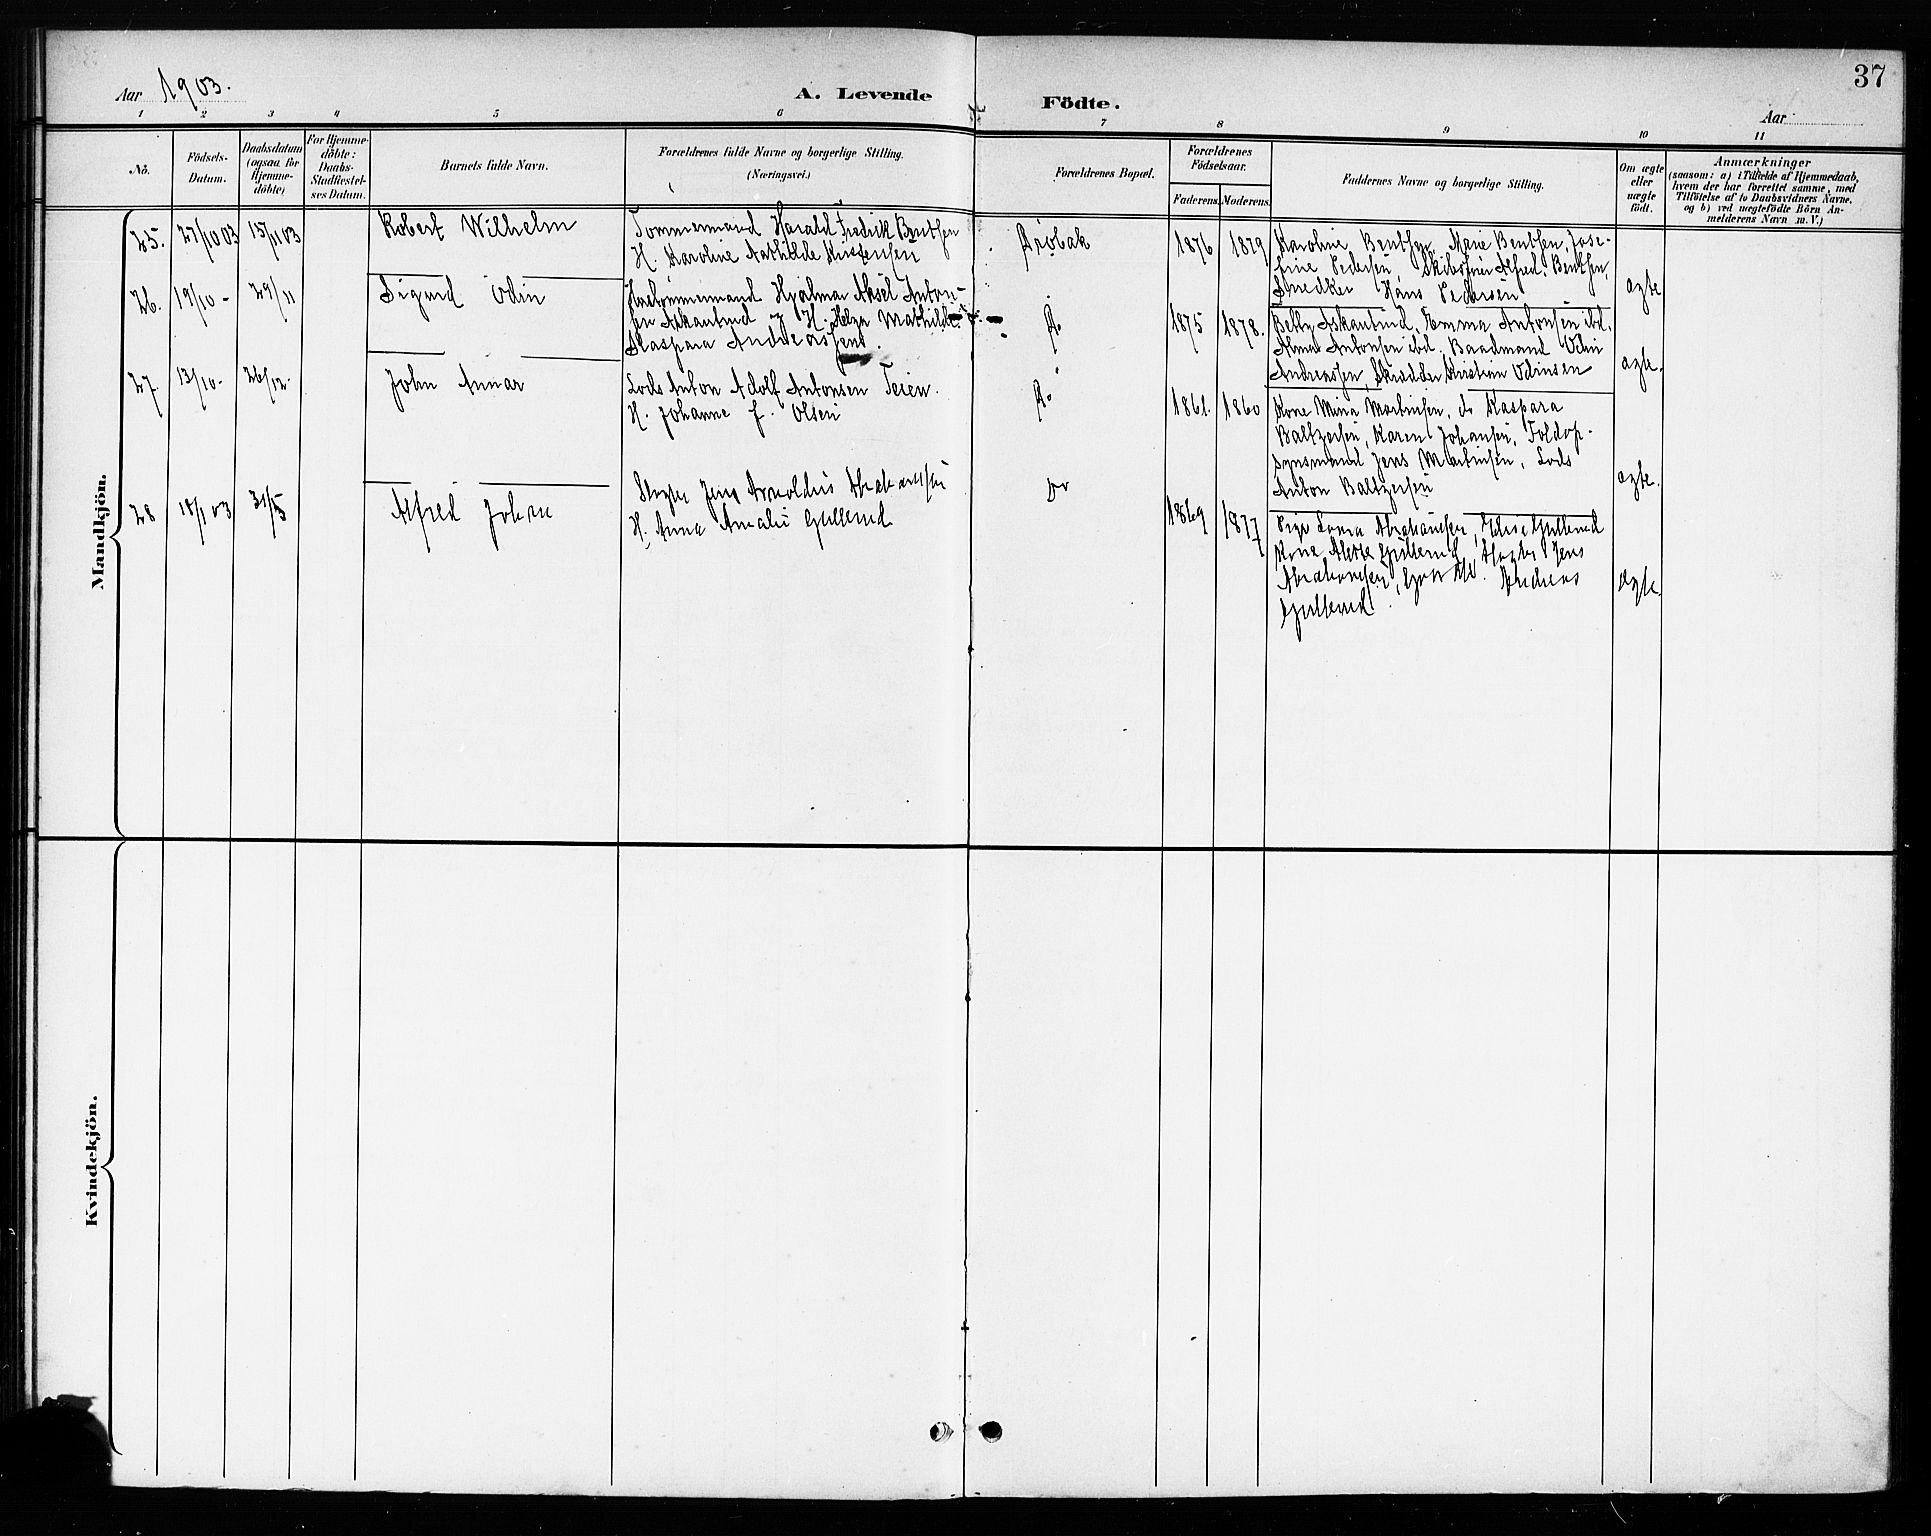 Aar 1903.
A. Levende Födte.
37
Aar
1 2 3 4 5 6 7 8 9 10 11
No.
Födsels-Datum.
Daabsdatum (ogsaa for Hjemme-döbte)
For Hjemme-döbte: Daabs-Stadfæstel-ses Datum.
Barnets fulde Navn.
Forældrenes fulde Navne og borgerlige Stilling.
(Næringsvei.)
Forældrenes Bopæl.
Forældrenes Födselsaar.
Faderens. Moderens.
Faddernes Navne og borgerlige Stilling.
Om ægte eller uægte födt.
Anmærkninger
(saasom: a) i Tilfælde af Hjemmedaab,
hvem der har forrettet samme, med
Tilföielse af to Daabsvidners Navne.
og b) ved uægtefödte Börn An-
melderens Navn m. V.)
Mandkjön.
25. 27/10 03 15/11 03 Robert Wilhelm
Tømmermand Harald Fredrik Bentsen
H. Karoline Mathilde
Drøbak 1876 1879
Karoline Bentsen, Marie Bentsen, Jose-
fine Pedersen, Alfred Bentsen,
Snedker Hans Pedersen
ægte
26. 19/10 - 29/11 Sigurd Odin
Hjalmar Aksel Anton-
sen Askautrud og H. Helga Mathilde
Kaspara Andreassen.
D. 1875 1878.
Betty Askautrud, Emma Antonsen ibd.
Antonsen ibd. Baadmand Odin
Andreassen, Skrædder Kristian Odinsen
ægte.
27. 13/10 - 26/12 - John Annar
Lods Anton Adolf Antonsen Teien.
H. Johanne f. Olsen
Do 1861. 1860
Kone Mina Martinsen, do Kaspara
Baltzersen, Karen Johansen, Toldop-
synsmand Jens Martinsen, Lods
Anton Baltzersen
ægte.
28 18/1 03 31/5 Alfred Johan
Slagter Jens Arnoldus Abrahamsen
H. Anna Amalie Gulterud
Do 1869 1877
Pige Abrahamsen, Gulterud
Kone Gulterud, Slagter Jens
Abrahamsen, Andreas
Gulterud.
ægte.
Kvindekjön.